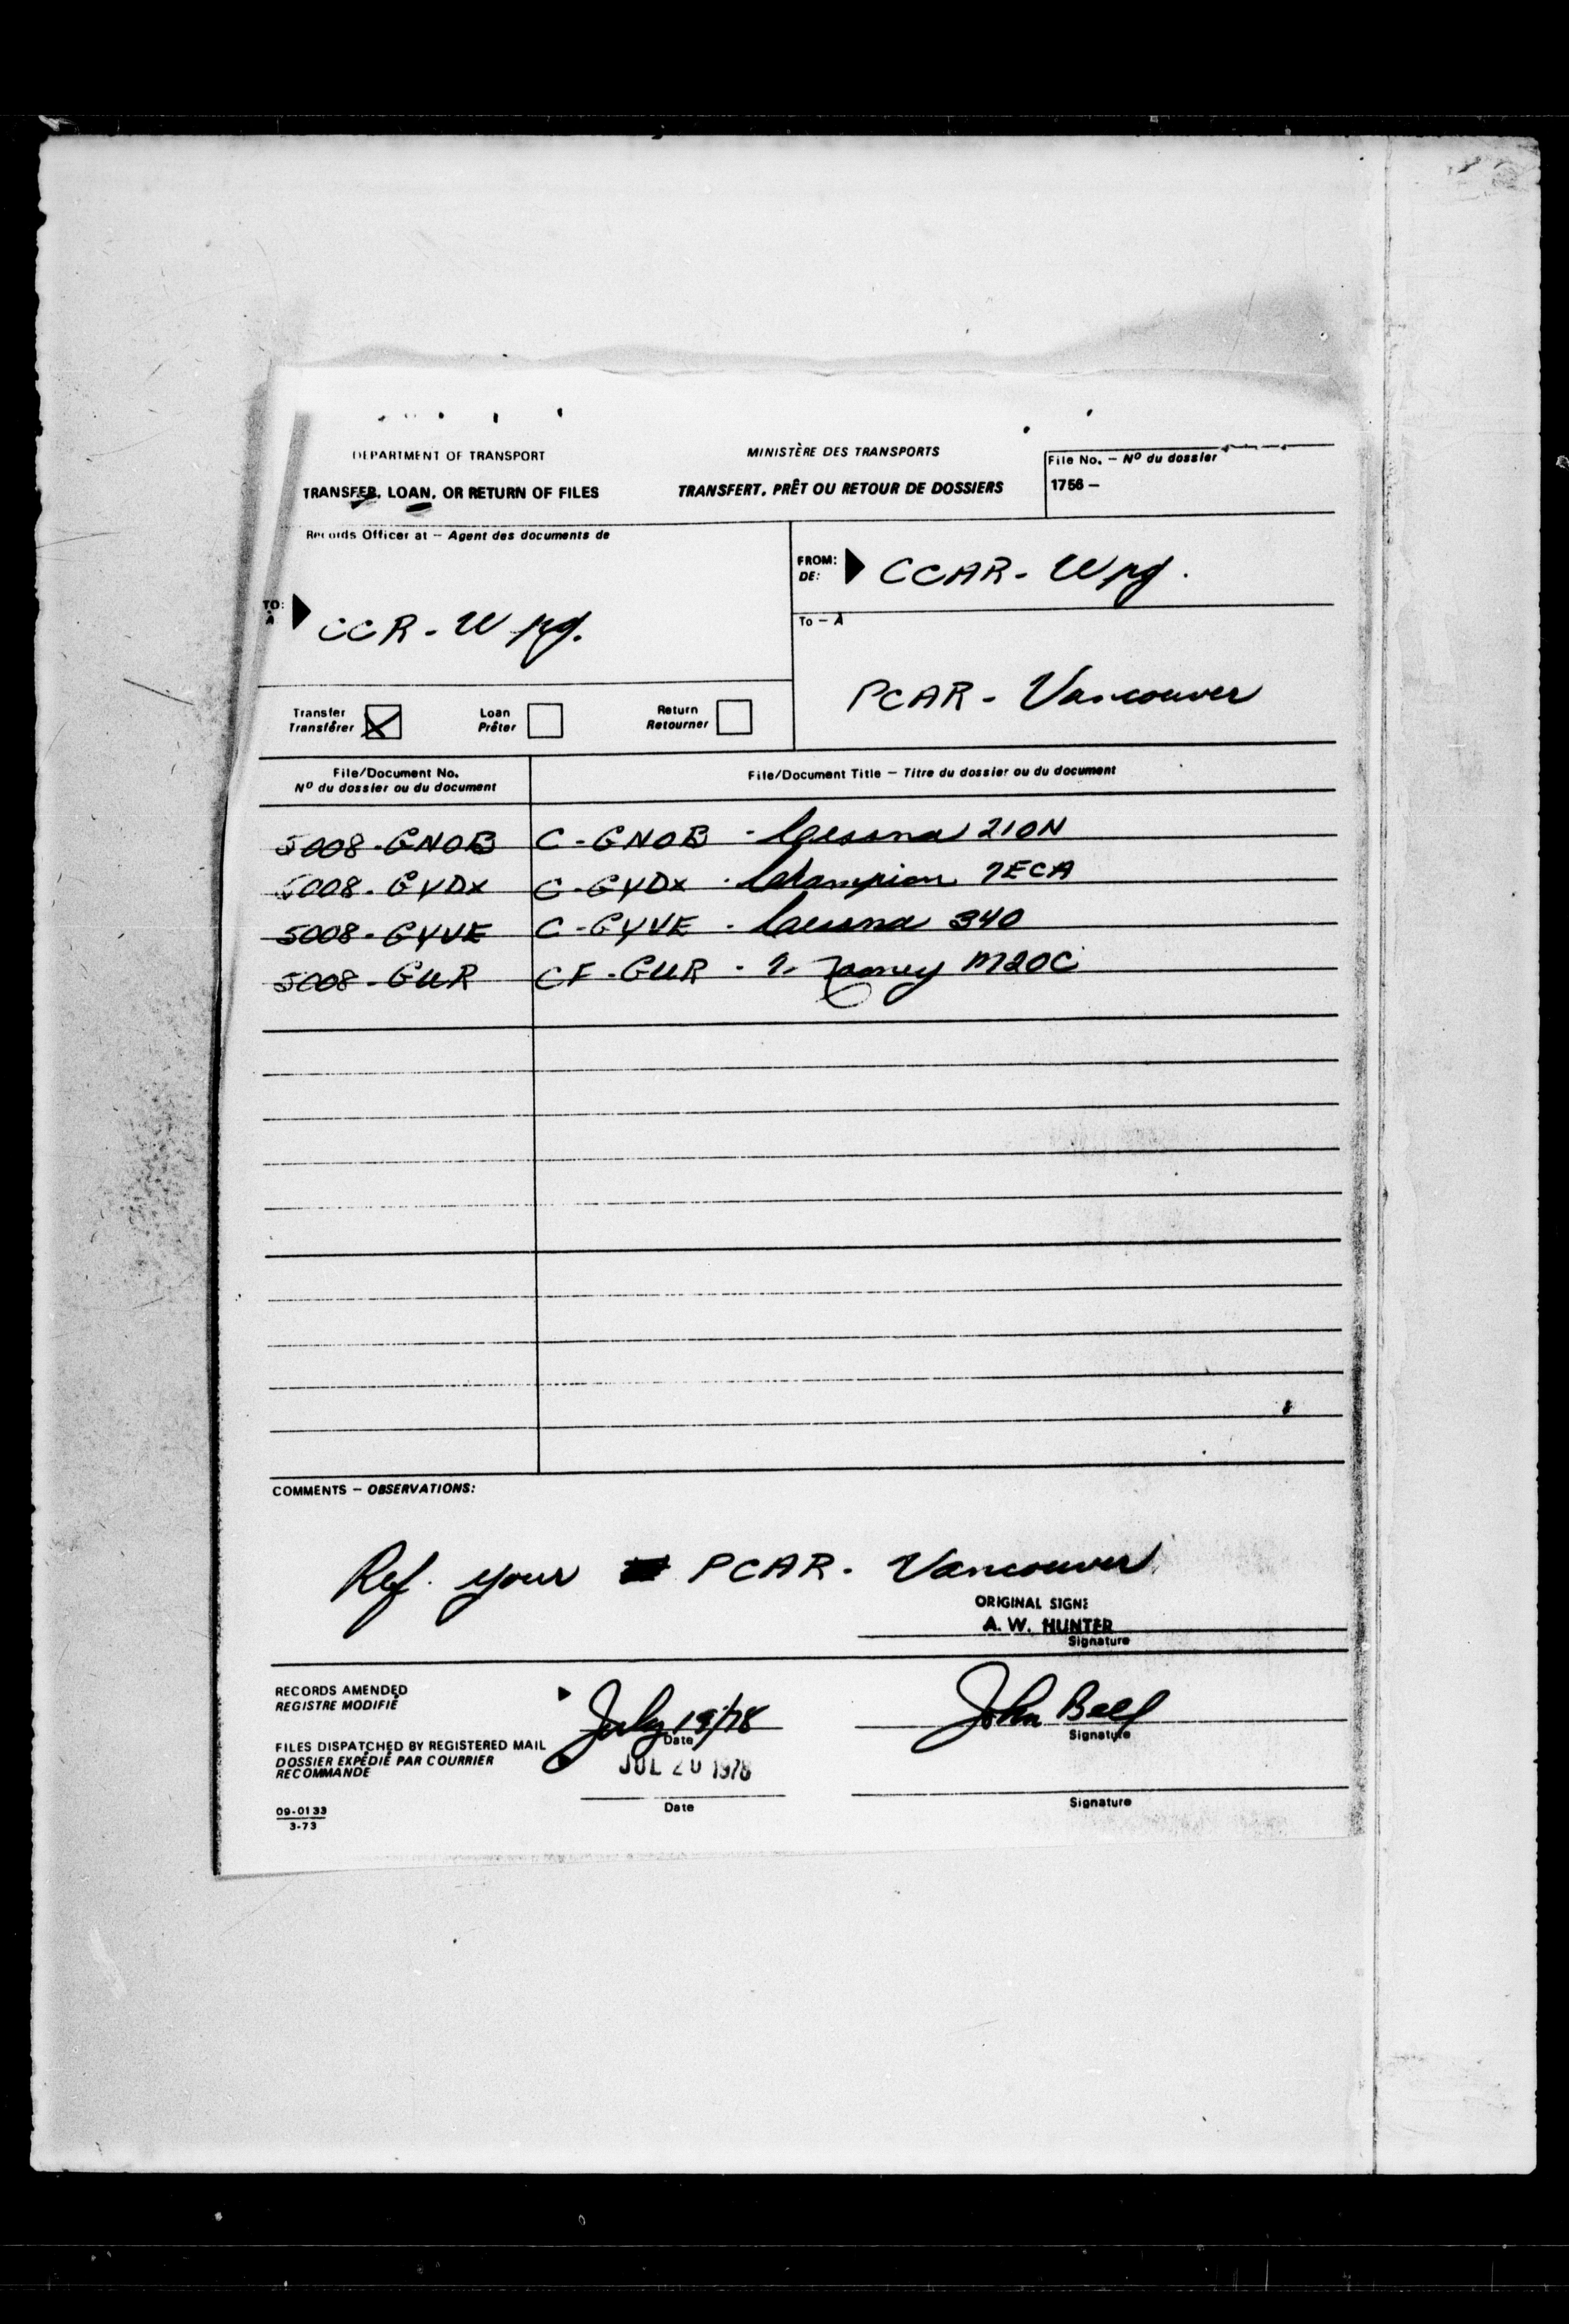 DEPARTMENT OF TRANSPORT
TRANSFER, LOAN, OR RETURN OF FILES
MINISTÈRE DES TRANSPORTS
TRANSFERT, PRÊT OU RETOUR DE DOSSIERS
File No. – Nº du dossier
1756 –
Records Officer at – Agent des documents de
TO:
À
CCR - Wpg.
FROM:
DE:
CCAR - Wpg.
To – À
PCAR - Vancouver
Transfer
Transférer
Loan
Prêter
Return
Retourner
File/Document No.
Nº du dossier ou du document
File/Document Title – Titre du dossier ou du document
5008-GNOB C-GNOB - Cessna 210N
5008-GYDX C-GYDX - Champion 7ECA
5008-GYVE C-GYVE - Cessna 340
5008-GUR CF-GUR - M20C
COMMENTS – OBSERVATIONS:
Ref. your PCAR - Vancouver
ORIGINAL SIGNE
A. W. HUNTER
Signature
RECORDS AMENDED
REGISTRE MODIFIÉ
July 19/78
Date
John Bell
Signature
FILES DISPATCHED BY REGISTERED MAIL
DOSSIER EXPÉDIÉ PAR COURRIER
RECOMMANDE
JUL 20 1978
Date
Signature
09-0133
3-73